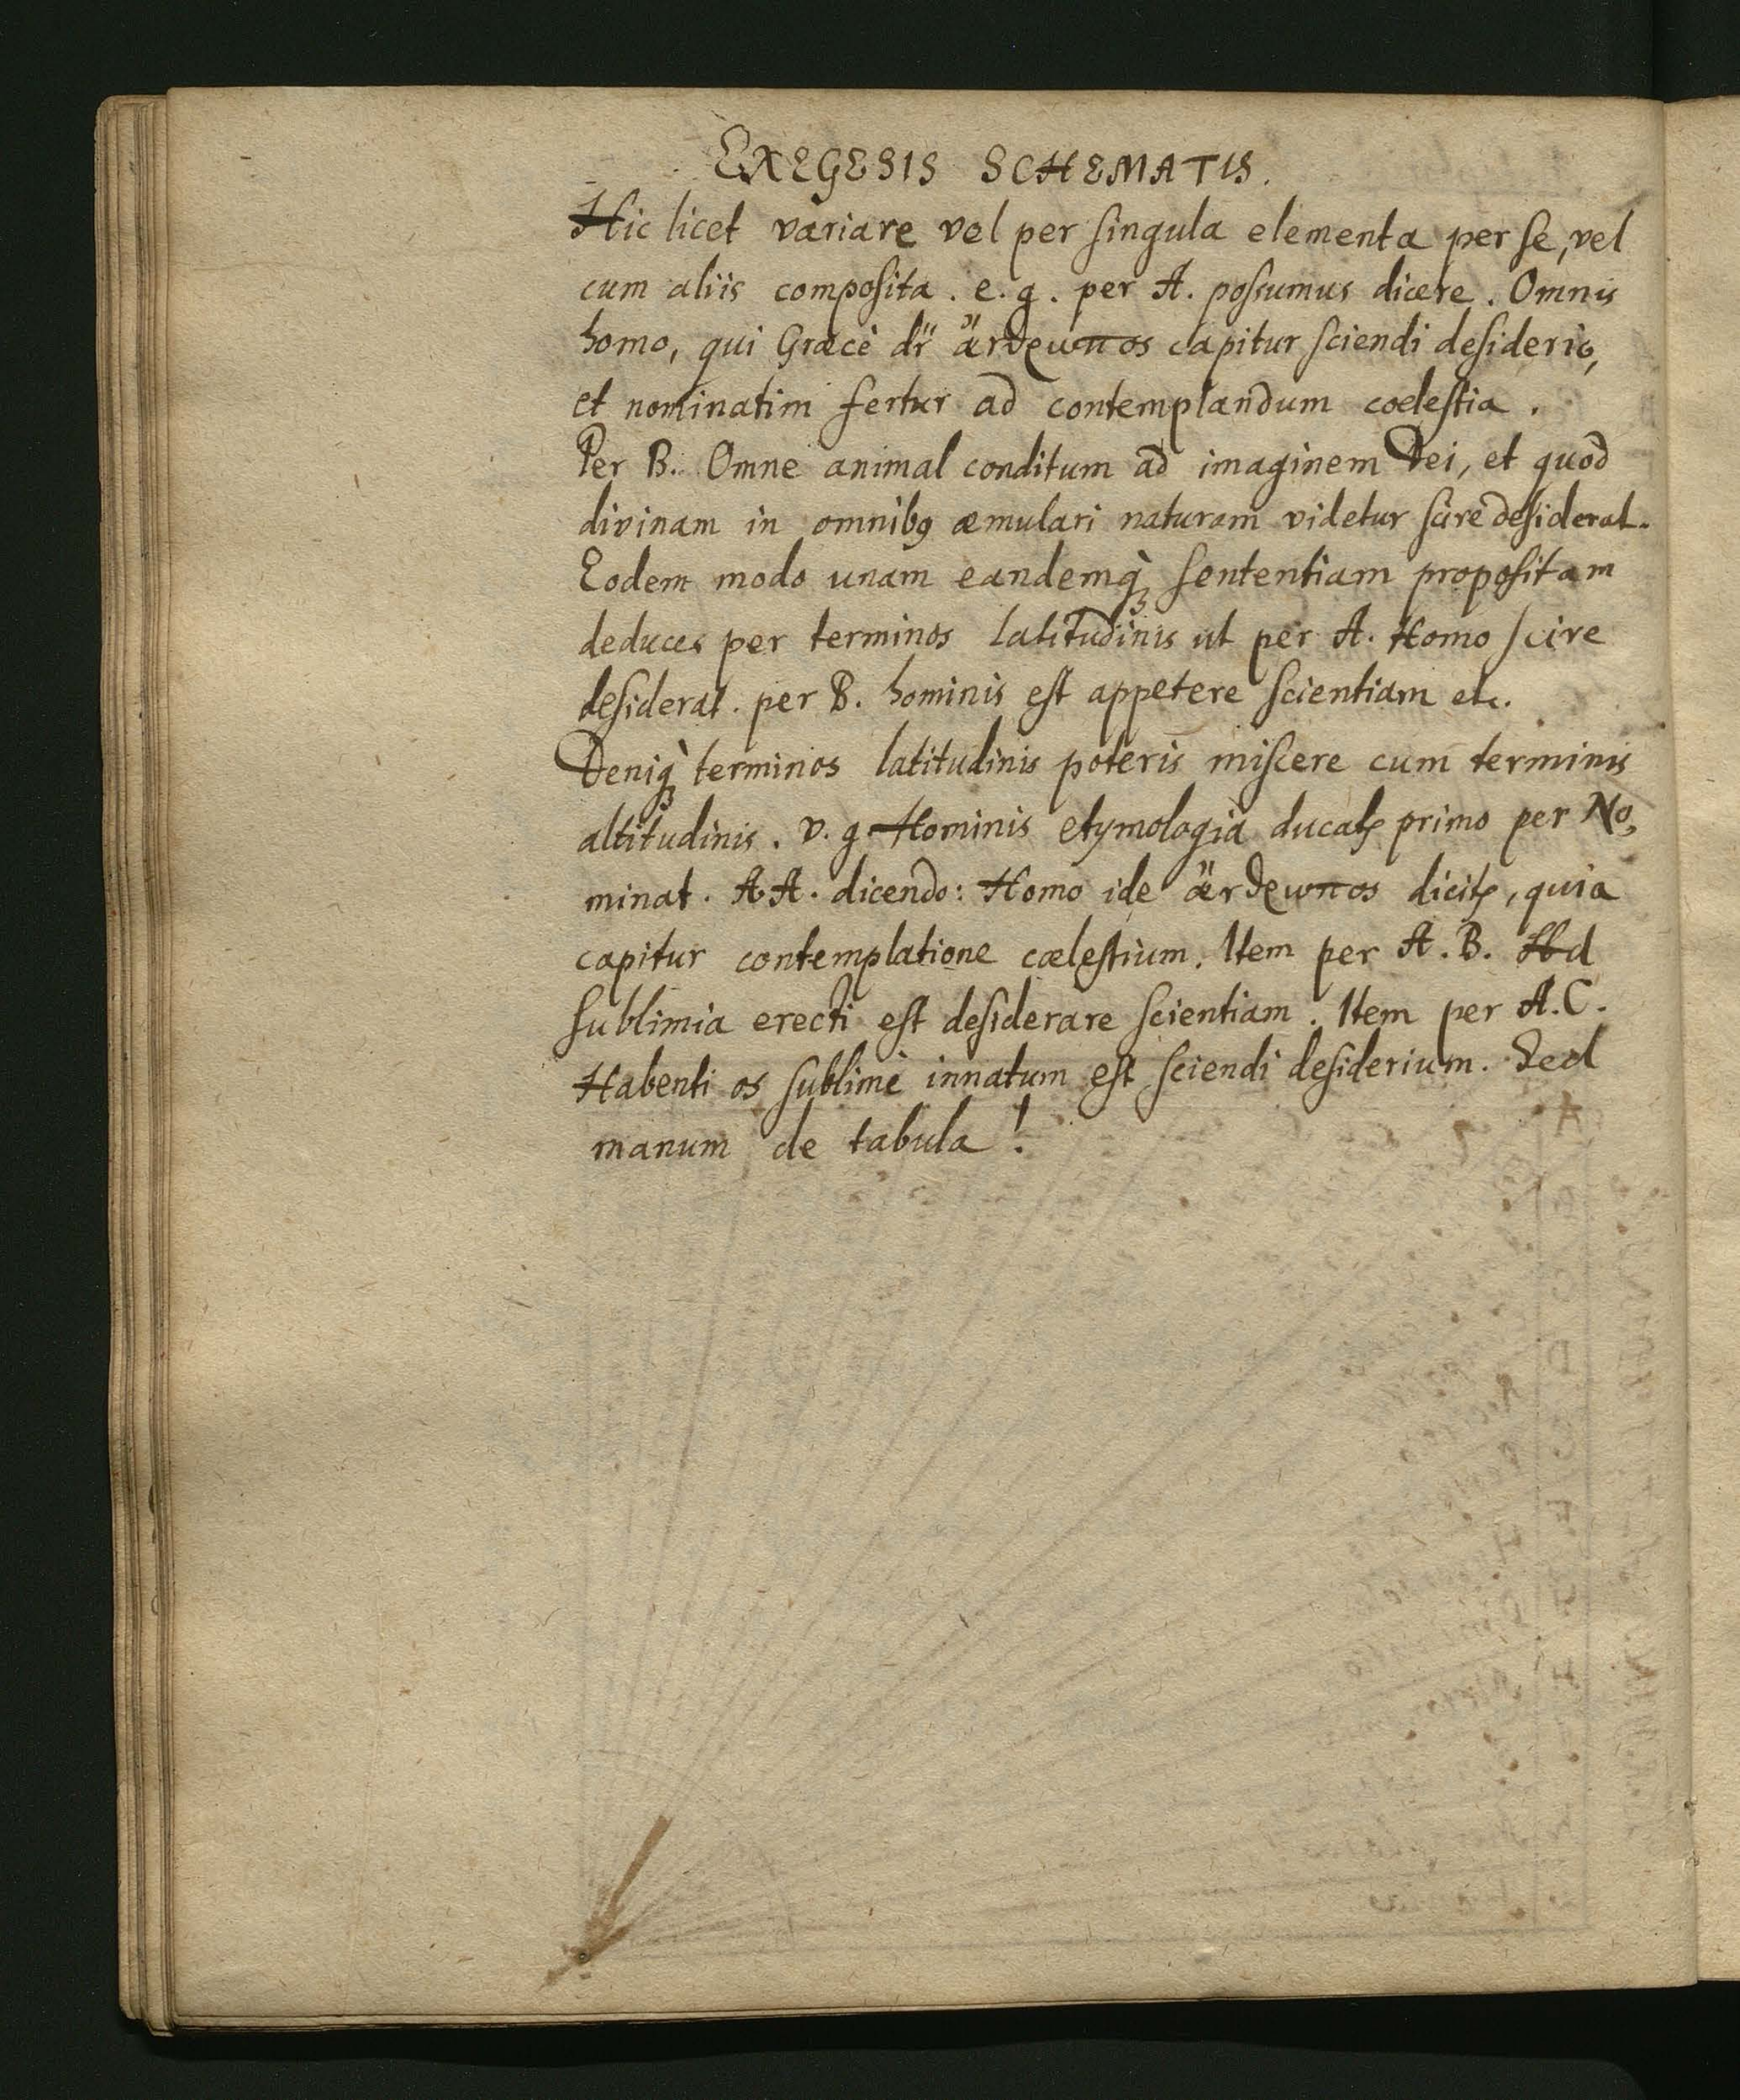 EXEGESIS SCHEMATIS.
Hic licet variare vel per singula elementa per se, vel
cum aliis composita. e. g. per A. possumus dicere. Omnis
homo, qui Græcè dr̃ ἄνθρωπος capitur sciendi desiderio,
et nominatim fertur ad contemplandum coelestia.
Per B. Omne animal conditum ad imaginem Dei, et quod
divinam in omnibꝰ æmulari naturam videtur scire desiderat.
Eodem modo unam eandemqꝫ sententiam propositam
deduces per terminos latitudinis ut per A. Homo scire
desiderat. per B. hominis est appetere scientiam etc.
Deniqꝫ terminos latitudinis poteris miscere cum terminis
altitudinis. v. g. Hominis etymologia ducatꝛ primo per No,
minat. A A. dicendo: Homo ide ἄνθρωπος dicitꝛ, quia
capitur contemplatione cælestium. Item per A. B. Ad
sublimia erecti est desiderare scientiam. Item per A. C.
Habenti os sublime innatum est sciendi desiderium. Sed
manum de tabula!